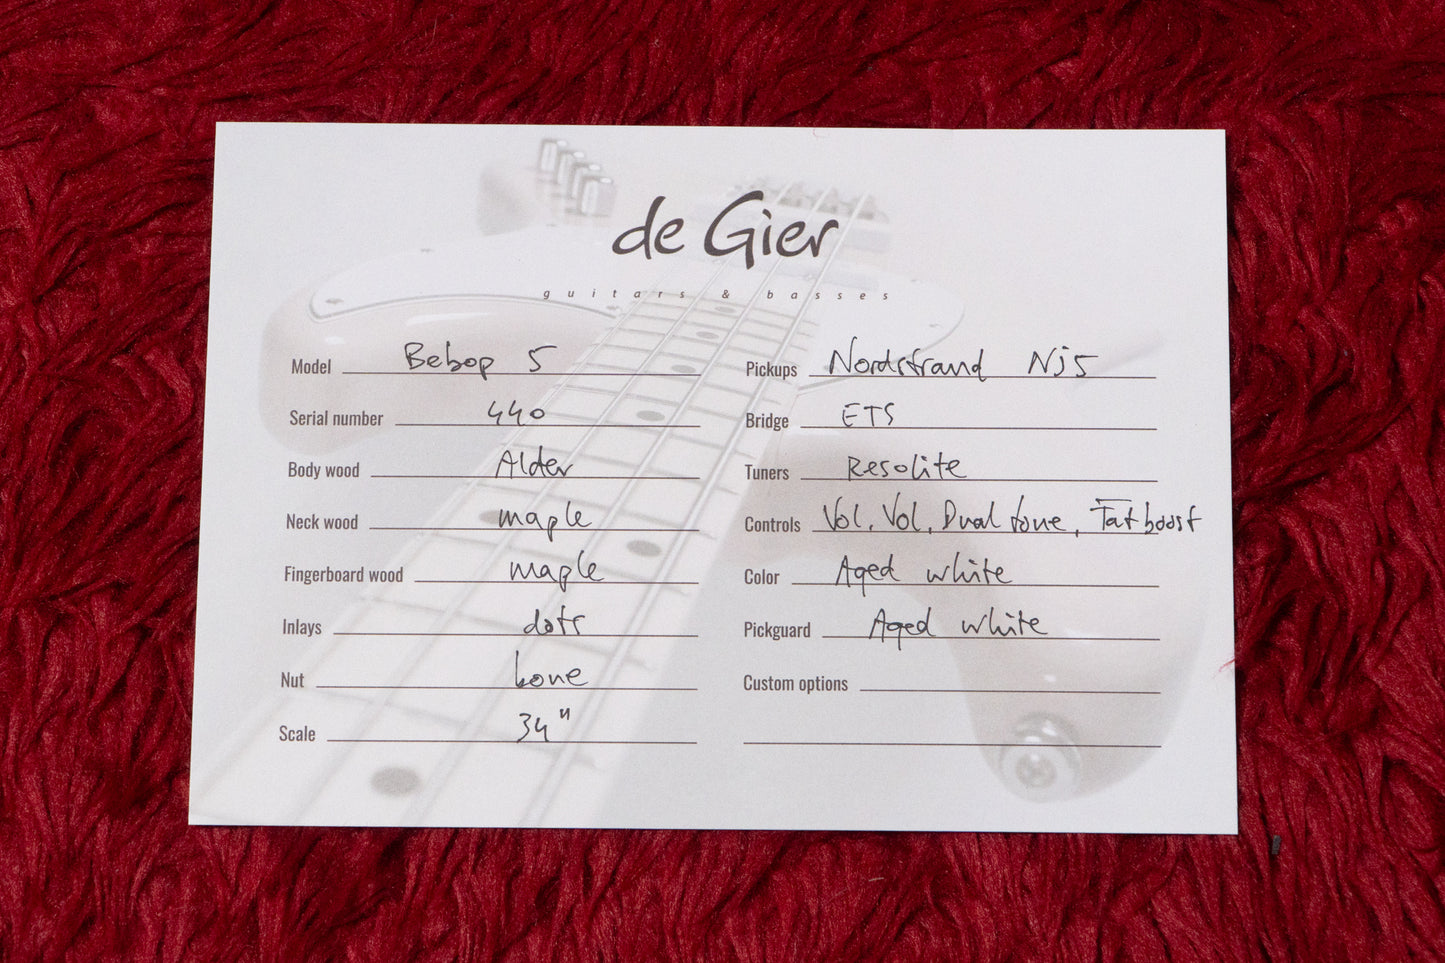 de Gier
guitars & basses
Model Bebop 5
Serial number 440
Body wood Alder
Neck wood maple
Fingerboard wood maple
Inlays dots
Nut bone
Scale 34"
Pickups Nordstrand Nj5
Bridge ETS
Tuners Resolite
Controls Vol, Vol, Dual tone, Fat boost
Color Aged white
Pickguard Aged white
Custom options